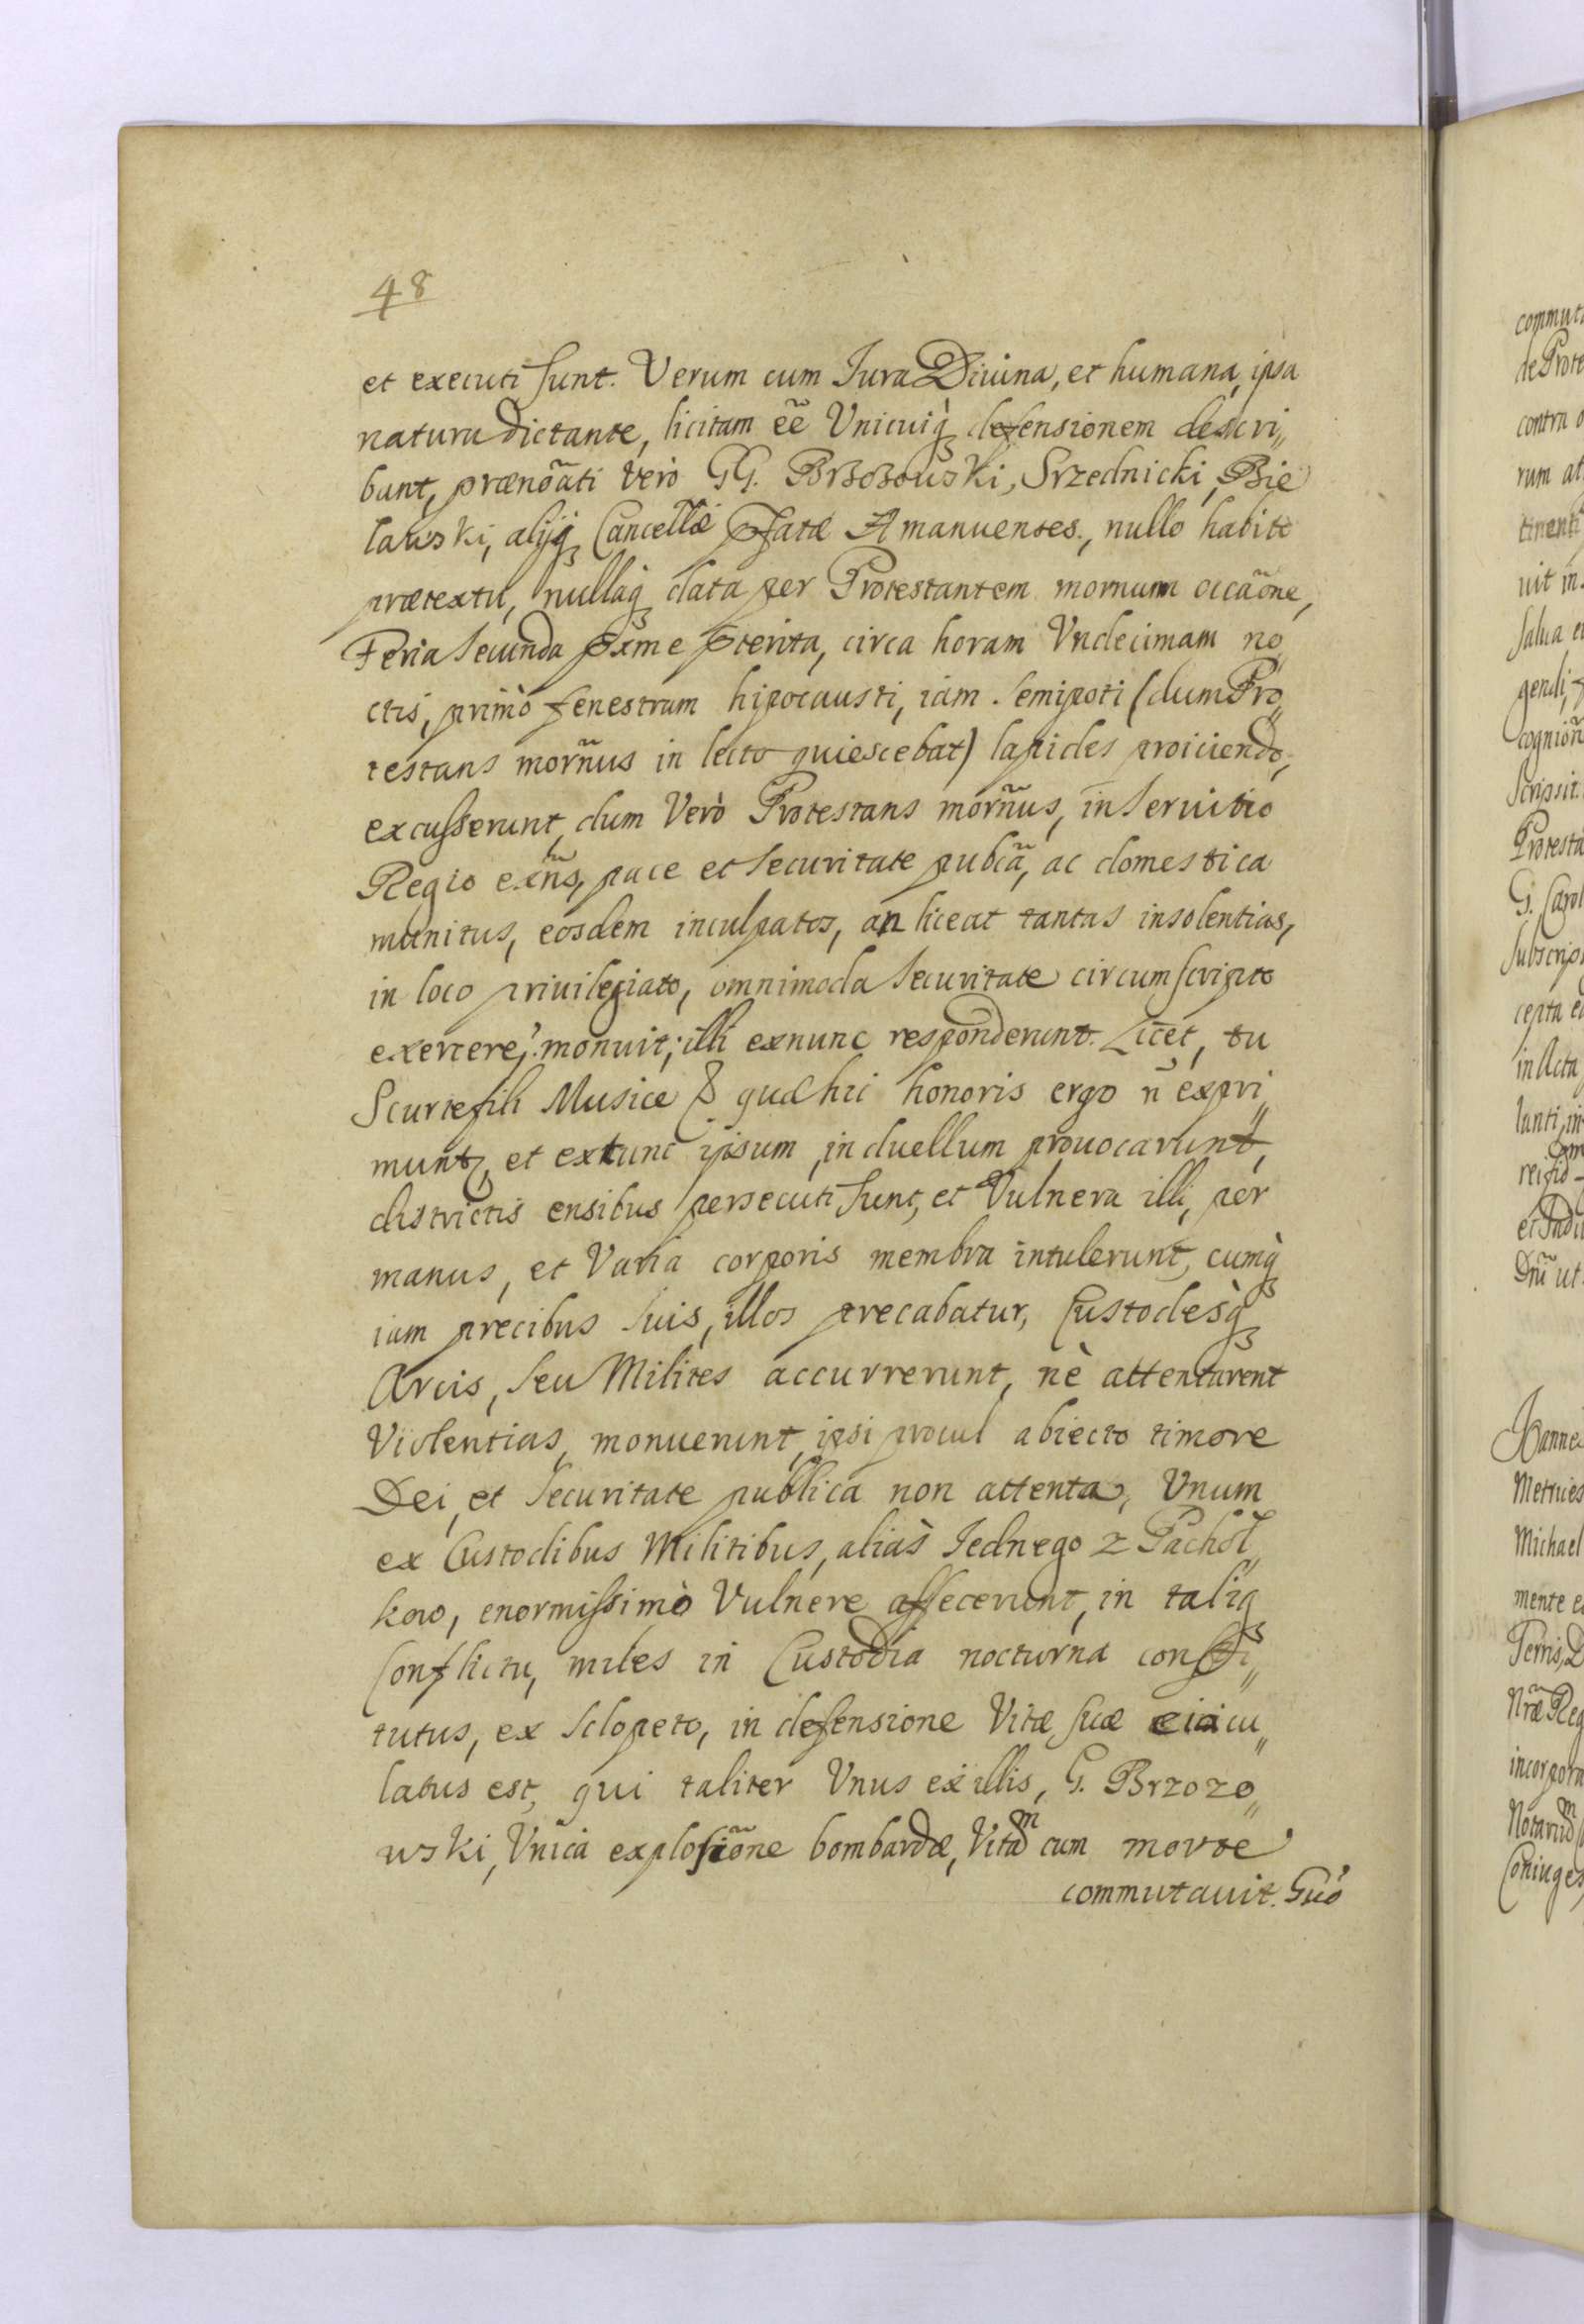 48
et executi sunt. Verum cum Iura Diuina, et humana, ipsa
natura dictante, licitam eẽ Vnicuiq̀ꝫ defensionem descri„
bunt, prænoãti Verò GG. Brzozowski, Srzednicki, Bie„
lawski, alijq̀ꝫ Cancellæ Pfatæ Amanuenses, nullo habito
prætextu, nullaq̀ꝫ data per Protestantem mornum occãone,
Feria Secunda pxme pterita, circa horam Vndecimam no„
ctis, primò fenestram hipocausti, iam semipoti (dum Pro„
testans morñus in lecto quiescebat) lapides proiiciendo,
excusserunt, dum Verò Protestans morñus, in Seruitio
Regio exñs, pace et Securitate pubcã, ac domestica
munitus, eosdem inculpatos, an liceat tantas insolentias,
in loco priuilegiato, omnimoda Securitate circumscripto
exercere? monuit; illi exnunc responderunt. Licet, tu
Scurte fili Musice & quæ hic honoris ergo ñ expri„
munt, et extunc ipsum, in duellum prouocarunt,
districtis ensibus persecuti sunt, et Vulnera illi, per
manus, et Varia corporis membra intulerunt, cumq̀ꝫ
iam precibus suis, illos precabatur, Custodesq̀ꝫ
Arcis, seu Milites accurrerunt, nè attentarent
Violentias, monuerunt, ipsi procul abiecto timore
Dei, et Securitate publica non attenta, Vnum
ex Custodibus Militibus, aliàs Iednego z Pachoł„
kow, enormissimò Vulnere affecerunt, in taliqꝫ
Conflictu, miles in Custodia nocturna consti„
tutus, ex sclopeto, in defensione Vitæ suæ eiacu„
latus est, qui taliter Vnus ex illis, G. Brzozo„
wski, Vnica explosiõne bombardæ, Vitam cum morte
commutauit. Quò